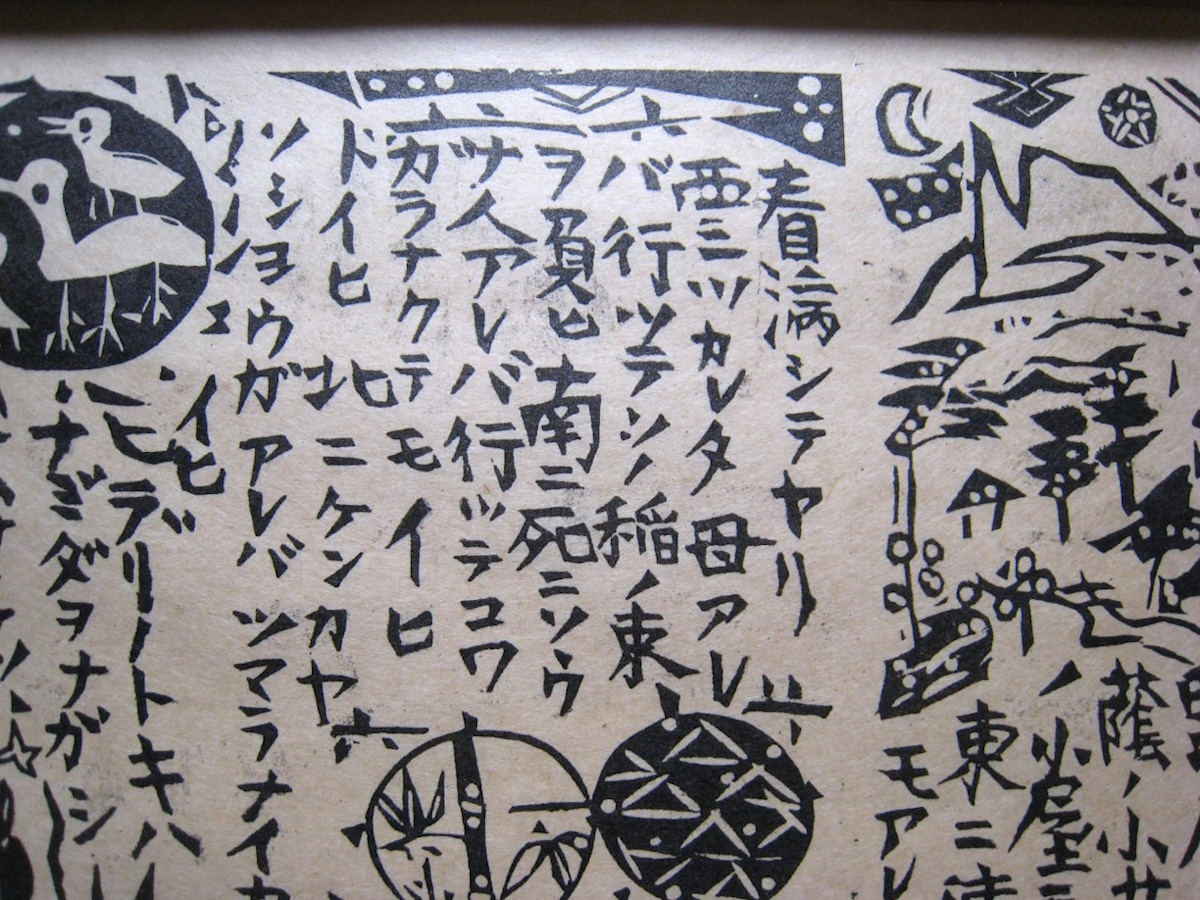 蔭ノ小サ
ノ小屋ニ
東ニ
モアレ
看病シテヤリ
西ニツカレタ母アレ
バ行ツテソノ稲ノ束
ヲ負ヒ南ニ死ニソウ
ナ人アレバ行ツテコワ
ガラナクテモイヒ
ドイヒ北ニケンカヤ
ソシヨウガアレバツマラナイカ
イヒ
ヒデリノトキハ
ナミダヲナガシ